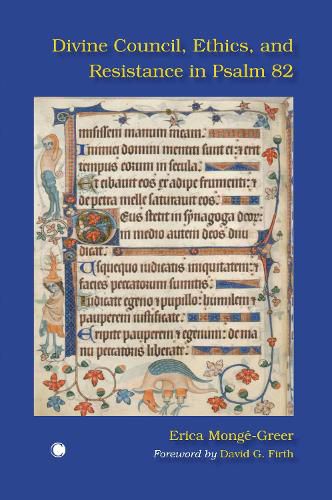 Divine Council, Ethics, and
Resistance in Psalm 82
misissem manum meam.
Inimici domini mentiti sunt ei: ⁊ erit
tempus eorum in secula.
Et cibauit eos ex adipe frumenti: ⁊
de petra melle saturauit eos.
Deus stetit in synagoga deorum:
in medio autem deos diiu
dicat.
Usquequo iudicatis iniquitatem: ⁊
facies peccatorum sumitis.
Iudicate egeno ⁊ pupillo: humilem ⁊
pauperem iustificate.
Eripite pauperem ⁊ egenum: de ma
nu peccatoris liberate.
Erica Mongé-Greer
Foreword by David G. Firth